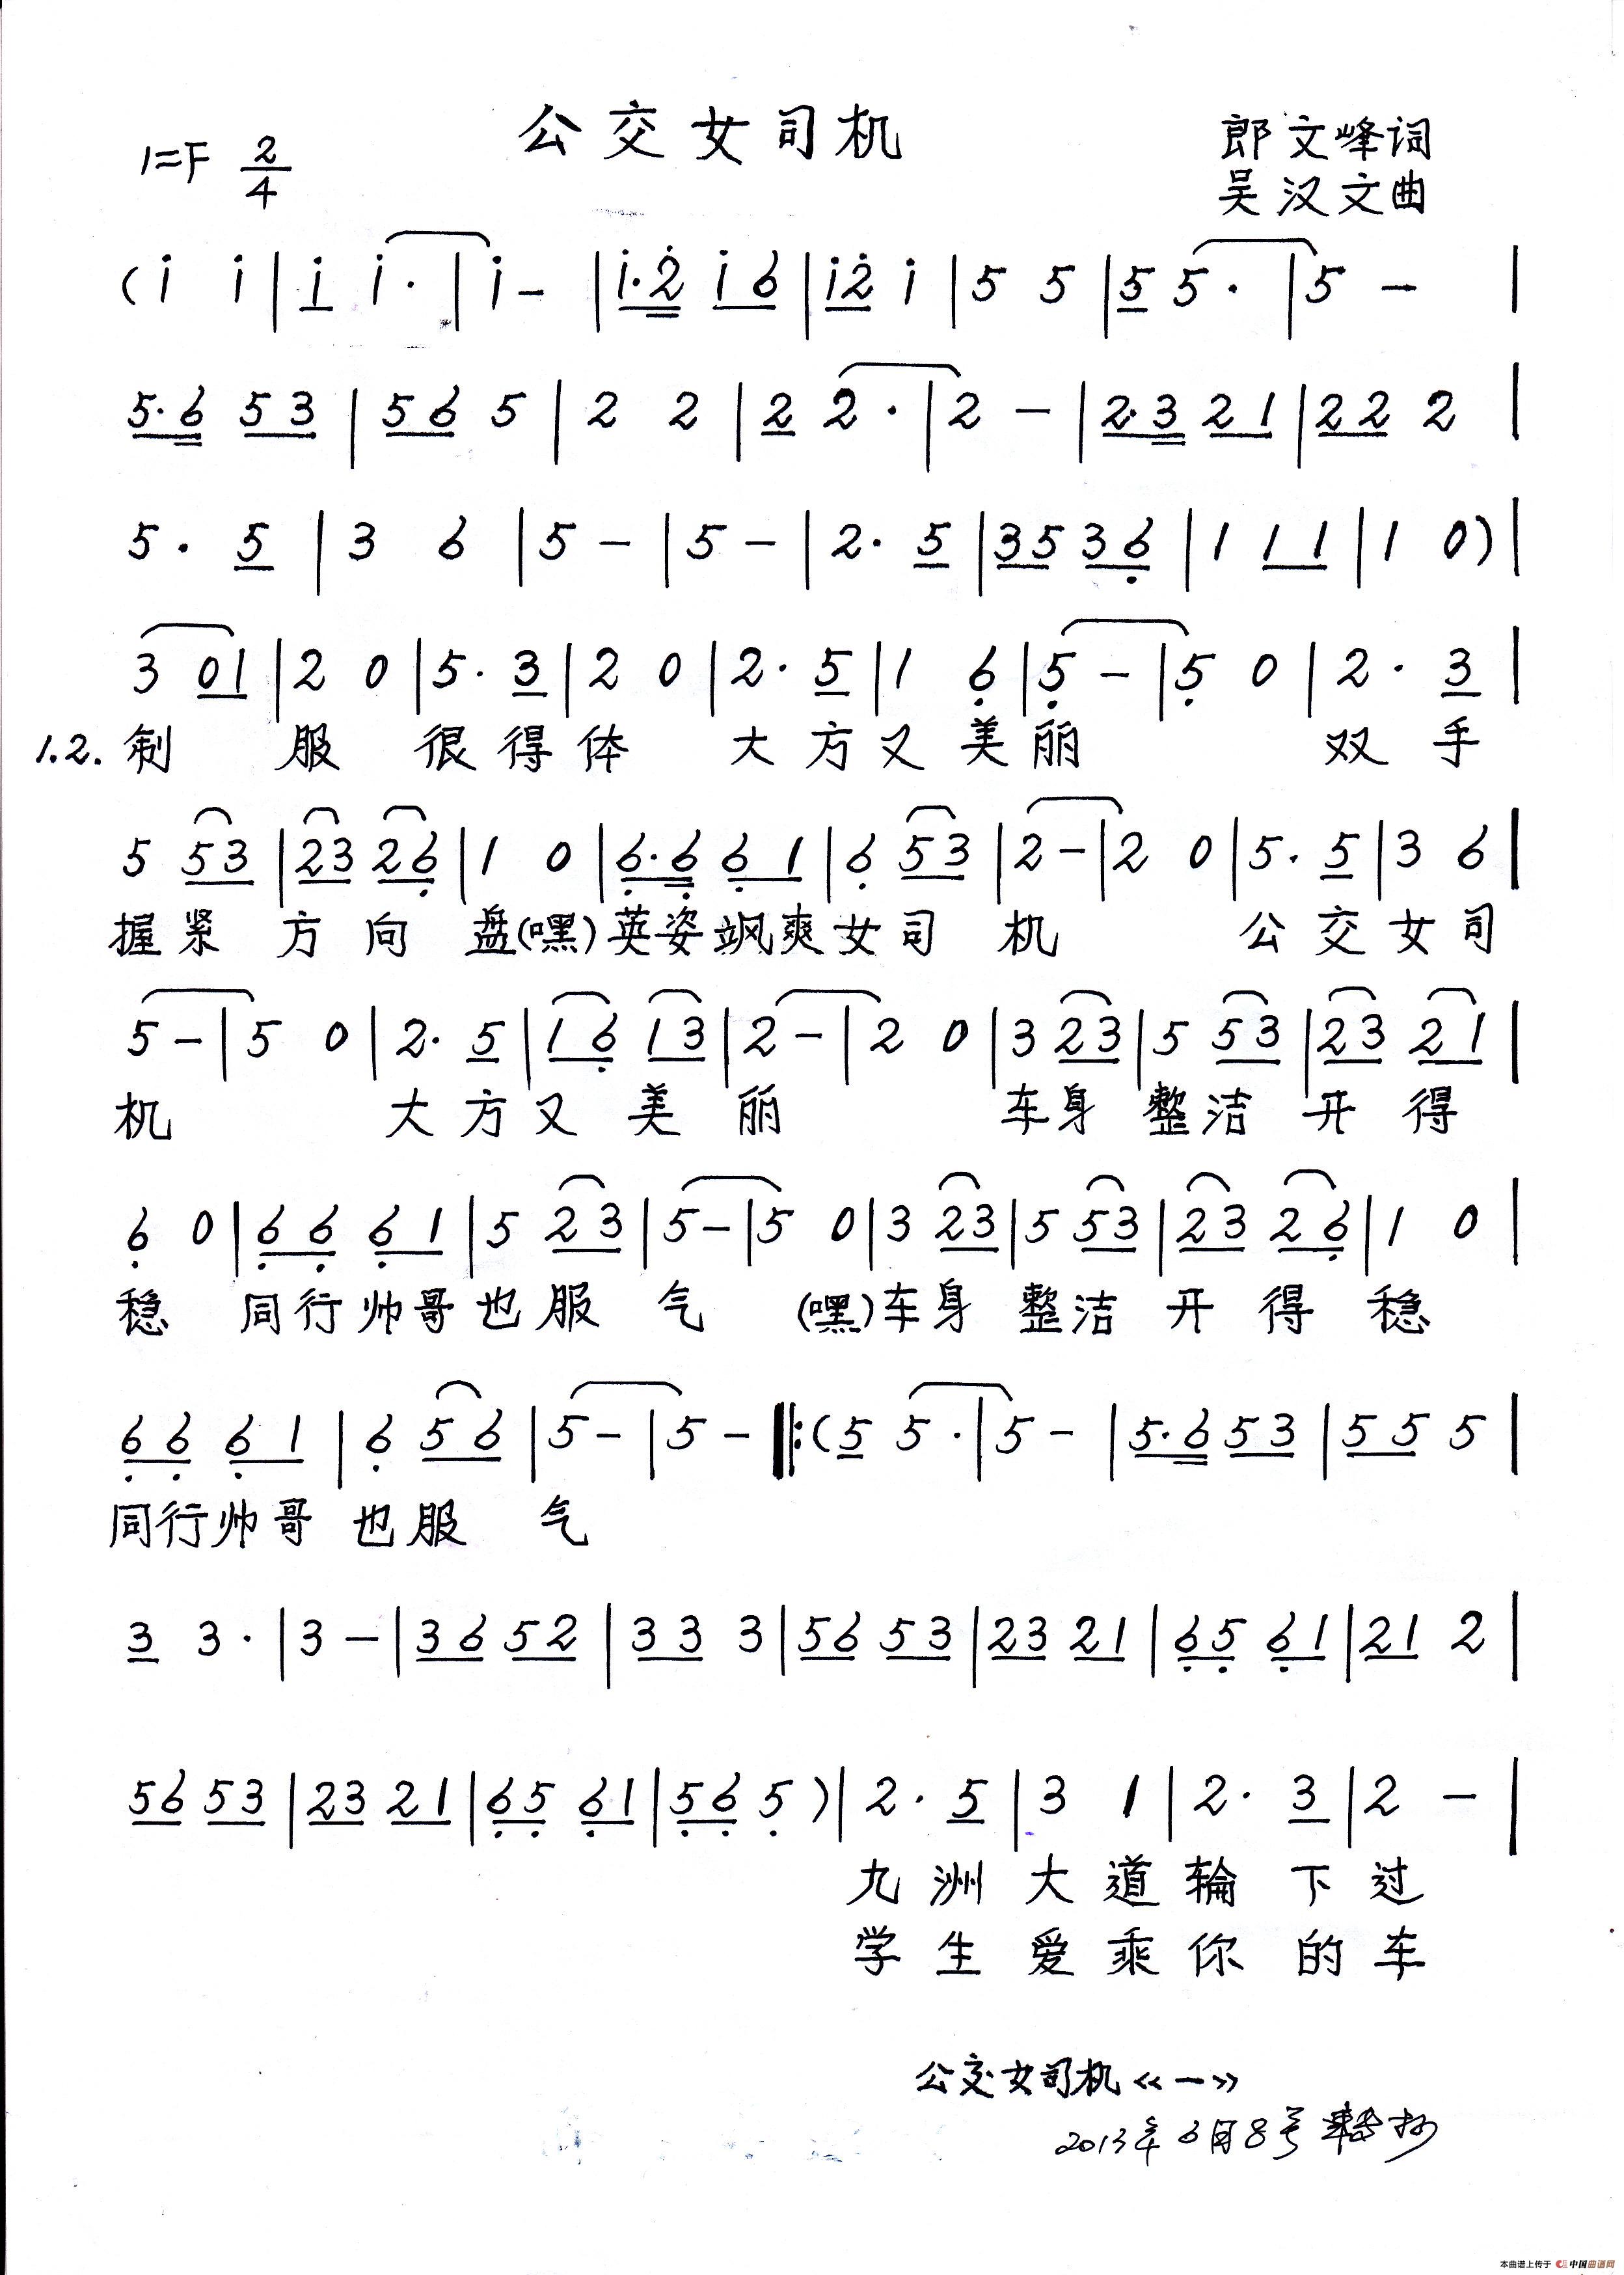 公交女司机
1=F 2/4
郎文峰词
吴汉文曲
(i i | i i· | i - | i·2̇ i 6 | i2̇ i | 5 5 | 5 5· | 5 - |
5·6 5 3 | 5 6 5 | 2 2 | 2 2· | 2 - | 2·3 2 1 | 2 2 2 |
5· 5 | 3 6 | 5 - | 5 - | 2· 5 | 35 36̣ | 1 1 1 | 1 0) |
3 01 | 2 0 | 5· 3 | 2 0 | 2· 5 | 1 6̣ | 5̣ - | 5̣ 0 | 2· 3 |
1.2. 制 服 很得体 大方又美丽 双手
5 53 | 23 26̣ | 1 0 | 6̣·6̣ 6̣ 1 | 6̣ 53 | 2 - | 2 0 | 5· 5 | 3 6 |
握紧 方向 盘(嘿)英姿飒爽女司 机 公交女司
5 - | 5 0 | 2· 5 | 16̣ 13 | 2 - | 2 0 | 3 23 | 5 53 | 23 21 |
机 大方又美丽 车身 整洁 开得
6̣ 0 | 6̣ 6̣ 6̣ 1 | 5 23 | 5 - | 5 0 | 3 23 | 5 53 | 23 26̣ | 1 0 |
稳 同行帅哥也服 气 (嘿)车身 整洁 开得稳
6̣ 6̣ 6̣ 1 | 6̣ 56 | 5 - | 5 - ‖: (5 5· | 5 - | 5·6 53 | 55 5 |
同行帅哥 也服 气
3 3· | 3 - | 36 52 | 33 3 | 56 53 | 23 21 | 6̣5̣ 6̣1 | 21 2 |
56 53 | 23 21 | 6̣5̣ 6̣1 | 5̣6̣ 5̣ ) | 2· 5 | 3 1 | 2· 3 | 2 - |
九洲大道轮下过
学生爱乘你的车
公交女司机《一》
2013年6月8号
本曲谱上传于 中国曲谱网